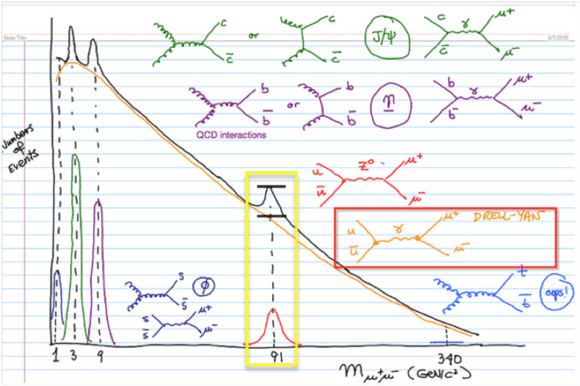 Note Title
6/7/2010
c
or
c
c̅
c̅
J/ψ
c
c̅
γ
μ+
μ-
b
or
b
b̅
b̅
b
b̅
γ
μ+
μ-
QCD interactions
Numbers
of
Events
u
u̅
Z⁰
μ+
μ-
u
u̅
γ
μ+
μ-
DRELL-YAN
s
s̅
ϕ
s
s̅
γ
μ+
μ-
t
t̅
oops!
1
3
9
91
340
Mμ+μ- (GeV/c²)